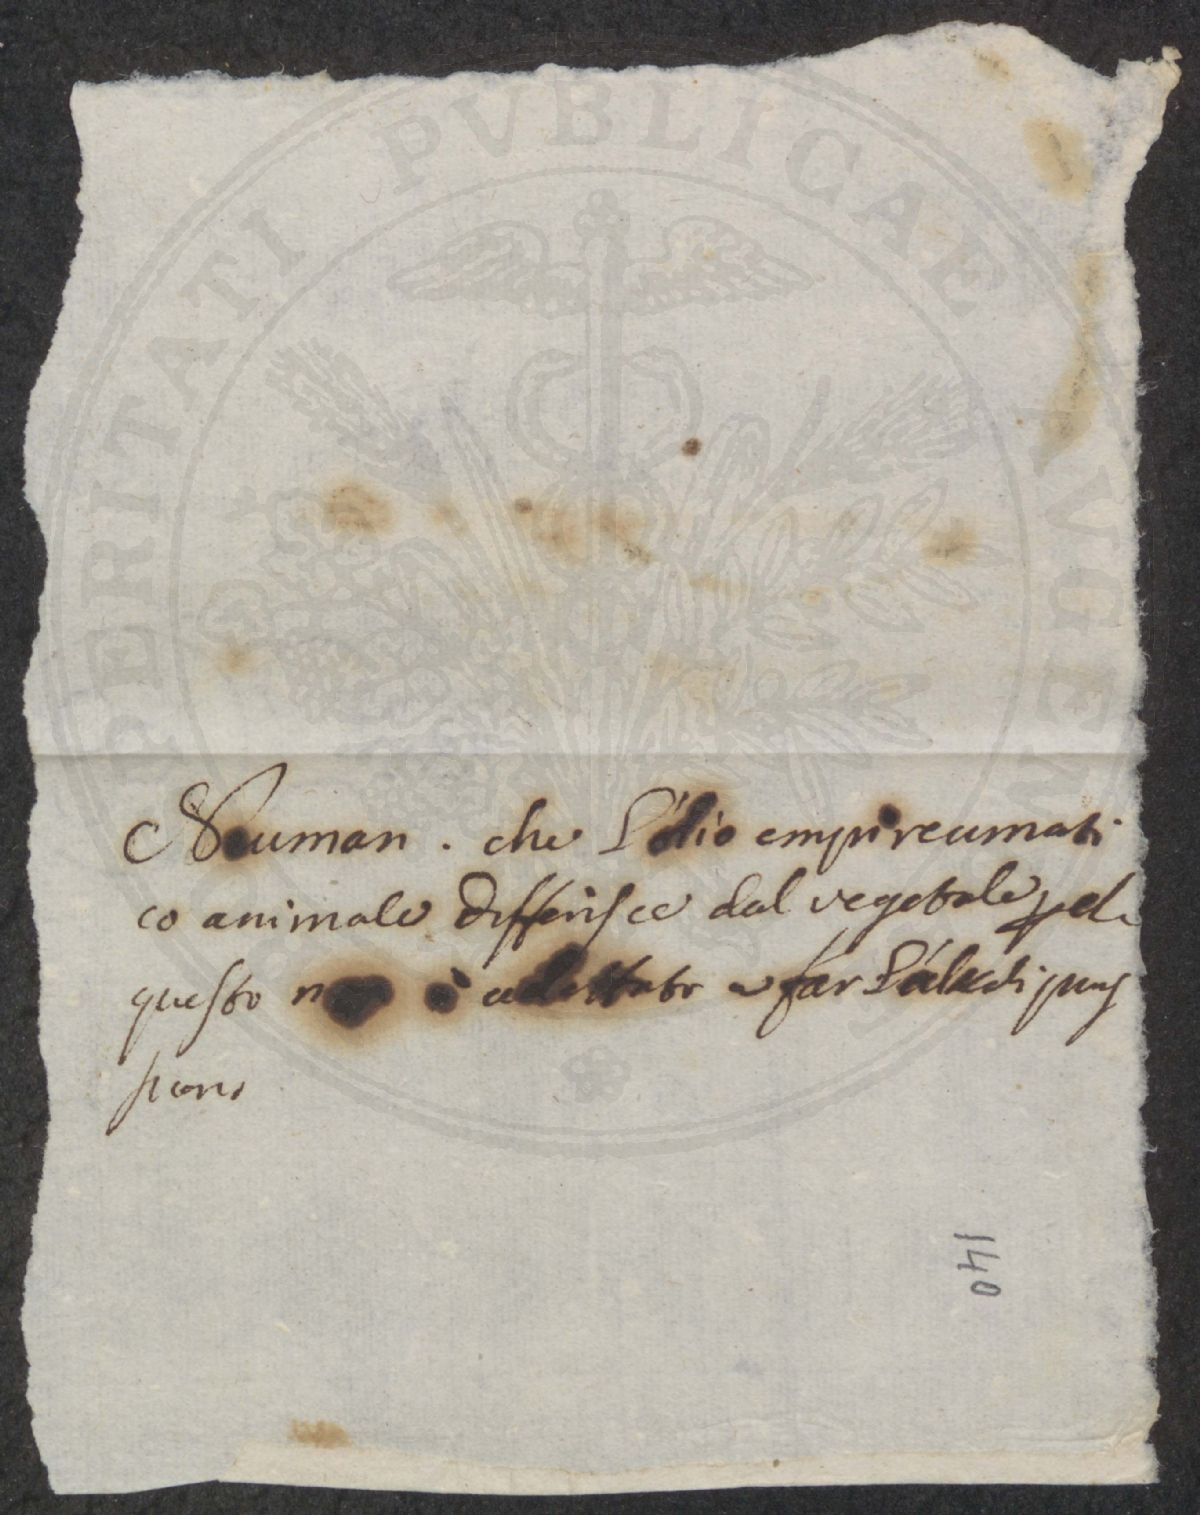 PROSPERITATI PVBLICAE AVGENDAE
Neuman. che l'olio empireumati
co animale differisce dal vegetale
questo non è adattato a far l'alcali
140